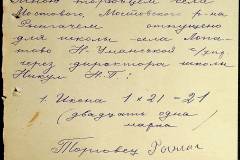 Мною торговцем села
Мостового, Мостовского р-на
отпущено
для школы села
Н.-Уманской
через директора школы
Никул Н. Г.:
1. Икона 1 × 21 - 21
(двадцать одна
марка)
Торговец